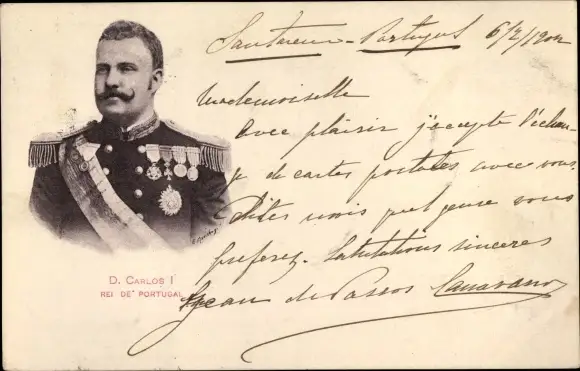 Santarem - Portugal 6/2/1902
Mademoiselle
Avec plaisir j'accepte l'échan-
ge de cartes postales avec vous.
Dites mois quel genre vous
preferez. Salutations sinceres
Jean de Passos Canavarro
D. CARLOS I
REI DE PORTUGAL